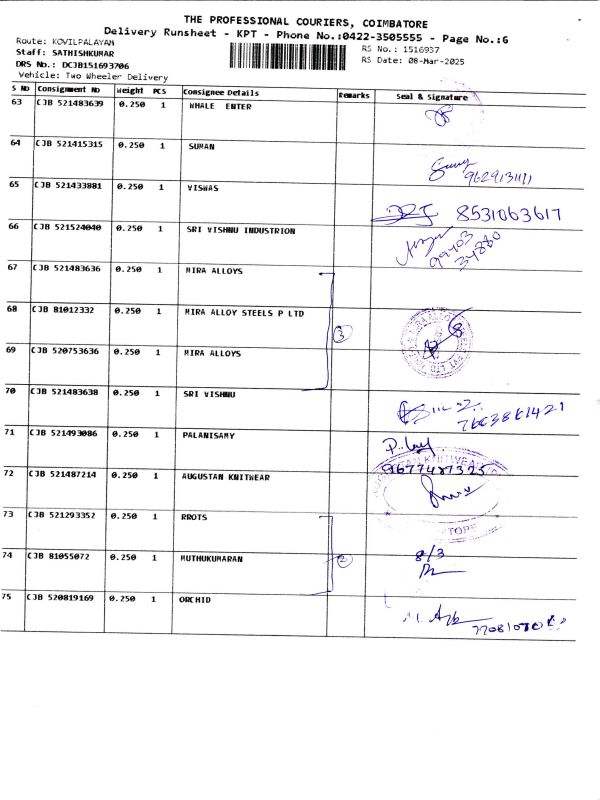 THE PROFESSIONAL COURIERS, COIMBATORE
Delivery Runsheet - KPT - Phone No.:0422-3505555 - Page No.:6
Route: KOVILPALAYAM
RS No.: 1516937
Staff: SATHISHKUMAR
RS Date: 08-Mar-2025
DRS No.: DCJB151693706
Vehicle: Two Wheeler Delivery
S No Consignment No Weight PCS Consignee Details Remarks Seal & Signature
63 CJB 521483639 0.250 1 WHALE ENTER
64 CJB 521415315 0.250 1 SUMAN
65 CJB 521433881 0.250 1 VISWAS
8531063617
66 CJB 521524040 0.250 1 SRI VISHNU INDUSTRION
99403
34880
67 CJB 521483636 0.250 1 MIRA ALLOYS
68 CJB 81012332 0.250 1 MIRA ALLOY STEELS P LTD
3
69 CJB 520753636 0.250 1 MIRA ALLOYS
70 CJB 521483638 0.250 1 SRI VISHNU
71 CJB 521493086 0.250 1 PALANISAMY
9677487325
72 CJB 521487214 0.250 1 AUGUSTAN KNITWEAR
73 CJB 521293352 0.250 1 RROTS
74 CJB 81055072 0.250 1 MUTHUKUMARAN
2
8/3
75 CJB 520819169 0.250 1 ORCHID